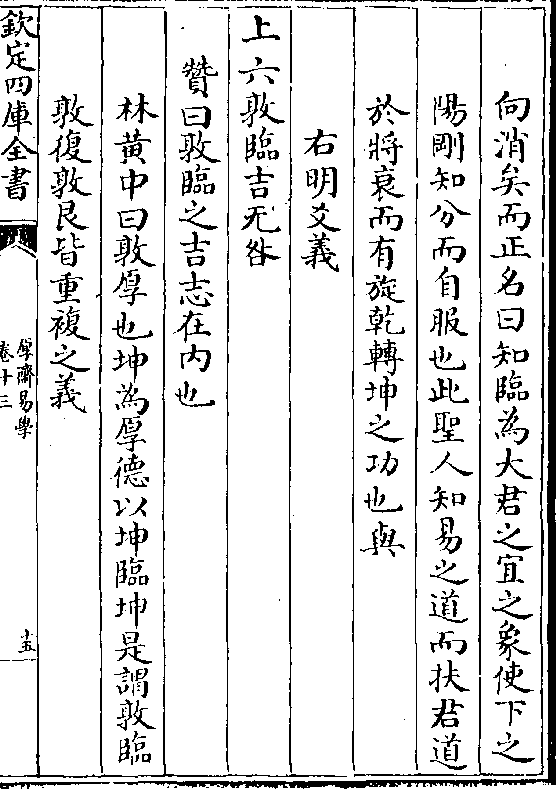 向消矣而正名曰知臨為大君之宜之象使下之
陽剛知分而自服也此聖人知易之道而扶君道
於將衰而有旋乾轉坤之功也與
右明爻義
上六敦臨吉无咎
贊曰敦臨之吉志在内也
林黄中曰敦厚也坤為厚德以坤臨坤是謂敦臨
敦復敦艮皆重複之義
欽定四庫全書
厚齋易學
卷十三
十五